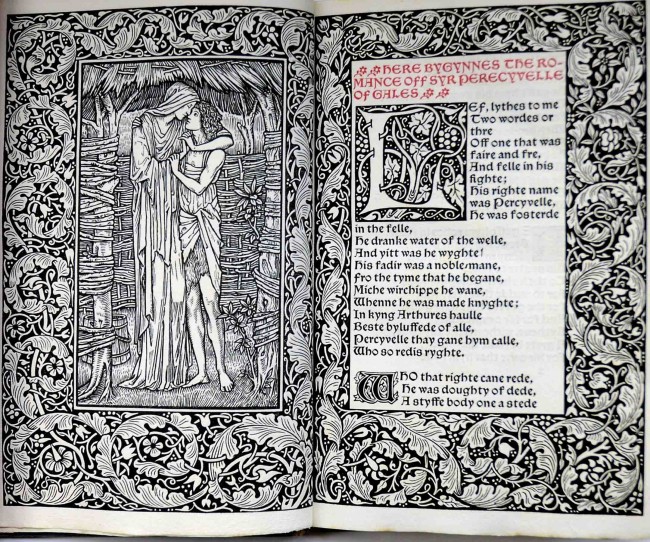 HERE BYGYNNES THE RO-
MANCE OFF SYR PERECYVELLE
OF GALES
LEF, lythes to me
Two wordes or
thre
Off one that was
faire and fre,
And felle in his
fighte;
His righte name
was Percyvelle,
He was fosterde
in the felle,
He dranke water of the welle,
And yitt was he wyghte!
His fadir was a noblemane,
Fro the tyme that he begane,
Miche wirchippe he wane,
Whenne he was made knyghte;
In kyng Arthures haulle
Beste byluffede of alle,
Percyvelle thay gane hym calle,
Who so redis ryghte.
WHO that righte cane rede,
He was doughty of dede,
A styffe body one a stede